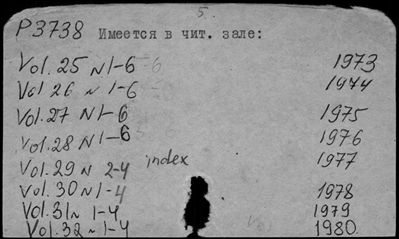 5.
P3738 Имеется в чит. зале:
Vol. 25 N 1-6 1973
Vol 26 N 1-6 1974
Vol. 27 N 1-6 1975
Vol. 28 N 1-6 1976
Vol. 29 N 2-4 index 1977
Vol. 30 N 1-4 1978
Vol. 31 N 1-4 1979
Vol. 32 N 1-4 1980